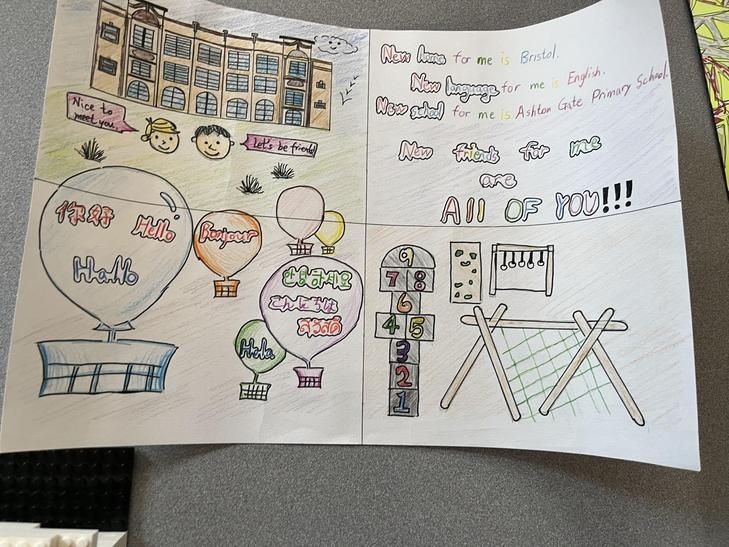 Nice to
meet you.
Let's be friends!
New home for me is Bristol.
New language for me is English.
New school for me is Ashton Gate Primary School.
New friends for me
are
All OF YOU!!!
你好 Hello
Hallo
Bonjour
안녕하세요
こんにちは
สวัสดี
Hola
9
7 8
6
4 5
3
2
1